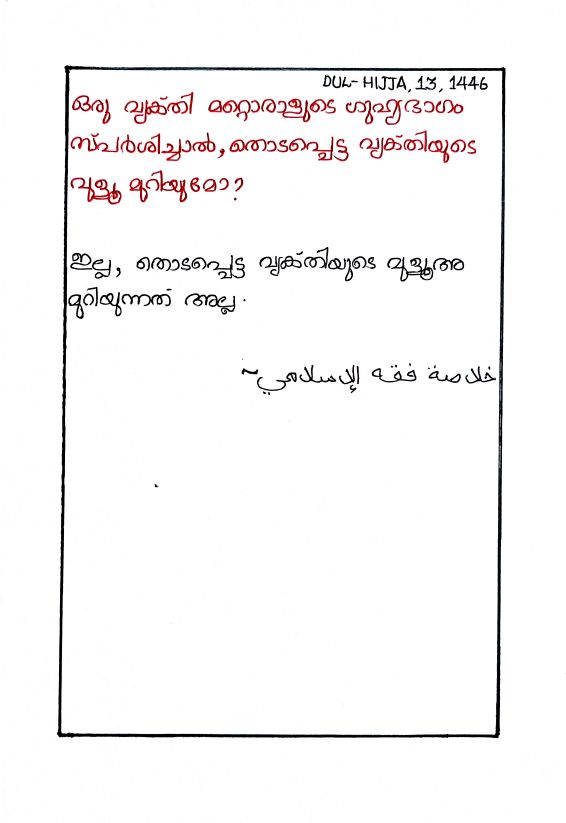 DUL-HIJJA, 13, 1446
ഒരു വ്യക്തി മറ്റൊരാളുടെ ഗുഹ്യഭാഗം
സ്പർശിച്ചാൽ, തൊടപ്പെട്ട വ്യക്തിയുടെ
വുളൂ മുറിയുമോ?
ഇല്ല, തൊടപ്പെട്ട വ്യക്തിയുടെ വുളൂഅ
മുറിയുന്നത് അല്ല.
خلاصة فقه الإسلامي~